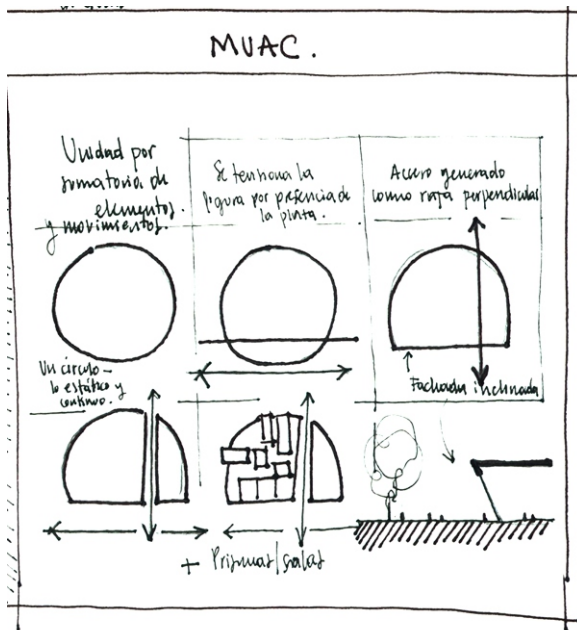 MUAC.
Unidad por
sumatoria de
elementos.
y movimientos.
Se tensiona la
figura por presencia de
la punta.
Acceso generado
como raja perpendicular
Un círculo –
lo estático y
continuo.
Fachada inclinada
+ Prismas/salas